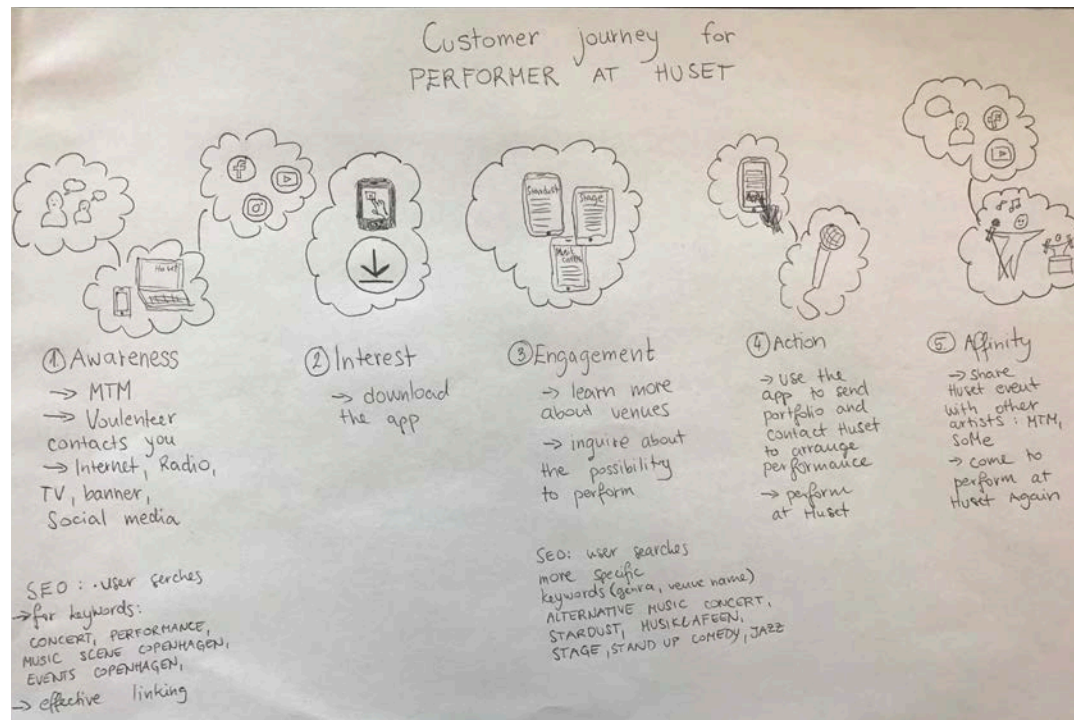 Customer journey for
PERFORMER AT HUSET
Huset
Stardust
Stage
① Awareness
→ MTM
→ Voulenteer
contacts you
→ Internet, Radio,
TV, banner,
Social media
SEO : · user serches
→ for keywords:
CONCERT, PERFORMANCE,
MUSIC SCENE COPENHAGEN,
EVENTS COPENHAGEN,
→ effective linking
② Interest
→ download
the app
③ Engagement
→ learn more
about venues
→ inquire about
the possibility
to perform
SEO: user searches
more specific
keywords (genra, venue name)
ALTERNATIVE MUSIC CONCERT,
STARDUST, MUSIKCAFEEN,
STAGE, STAND UP COMEDY, JAZZ
④ Action
→ use the
app to send
portfolio and
contact Huset
to arrange
performance
→ perform
at Huset
⑤ Affinity
→ share
Huset event
with other
artists : MTM,
SoMe
→ come to
perform at
Huset Again